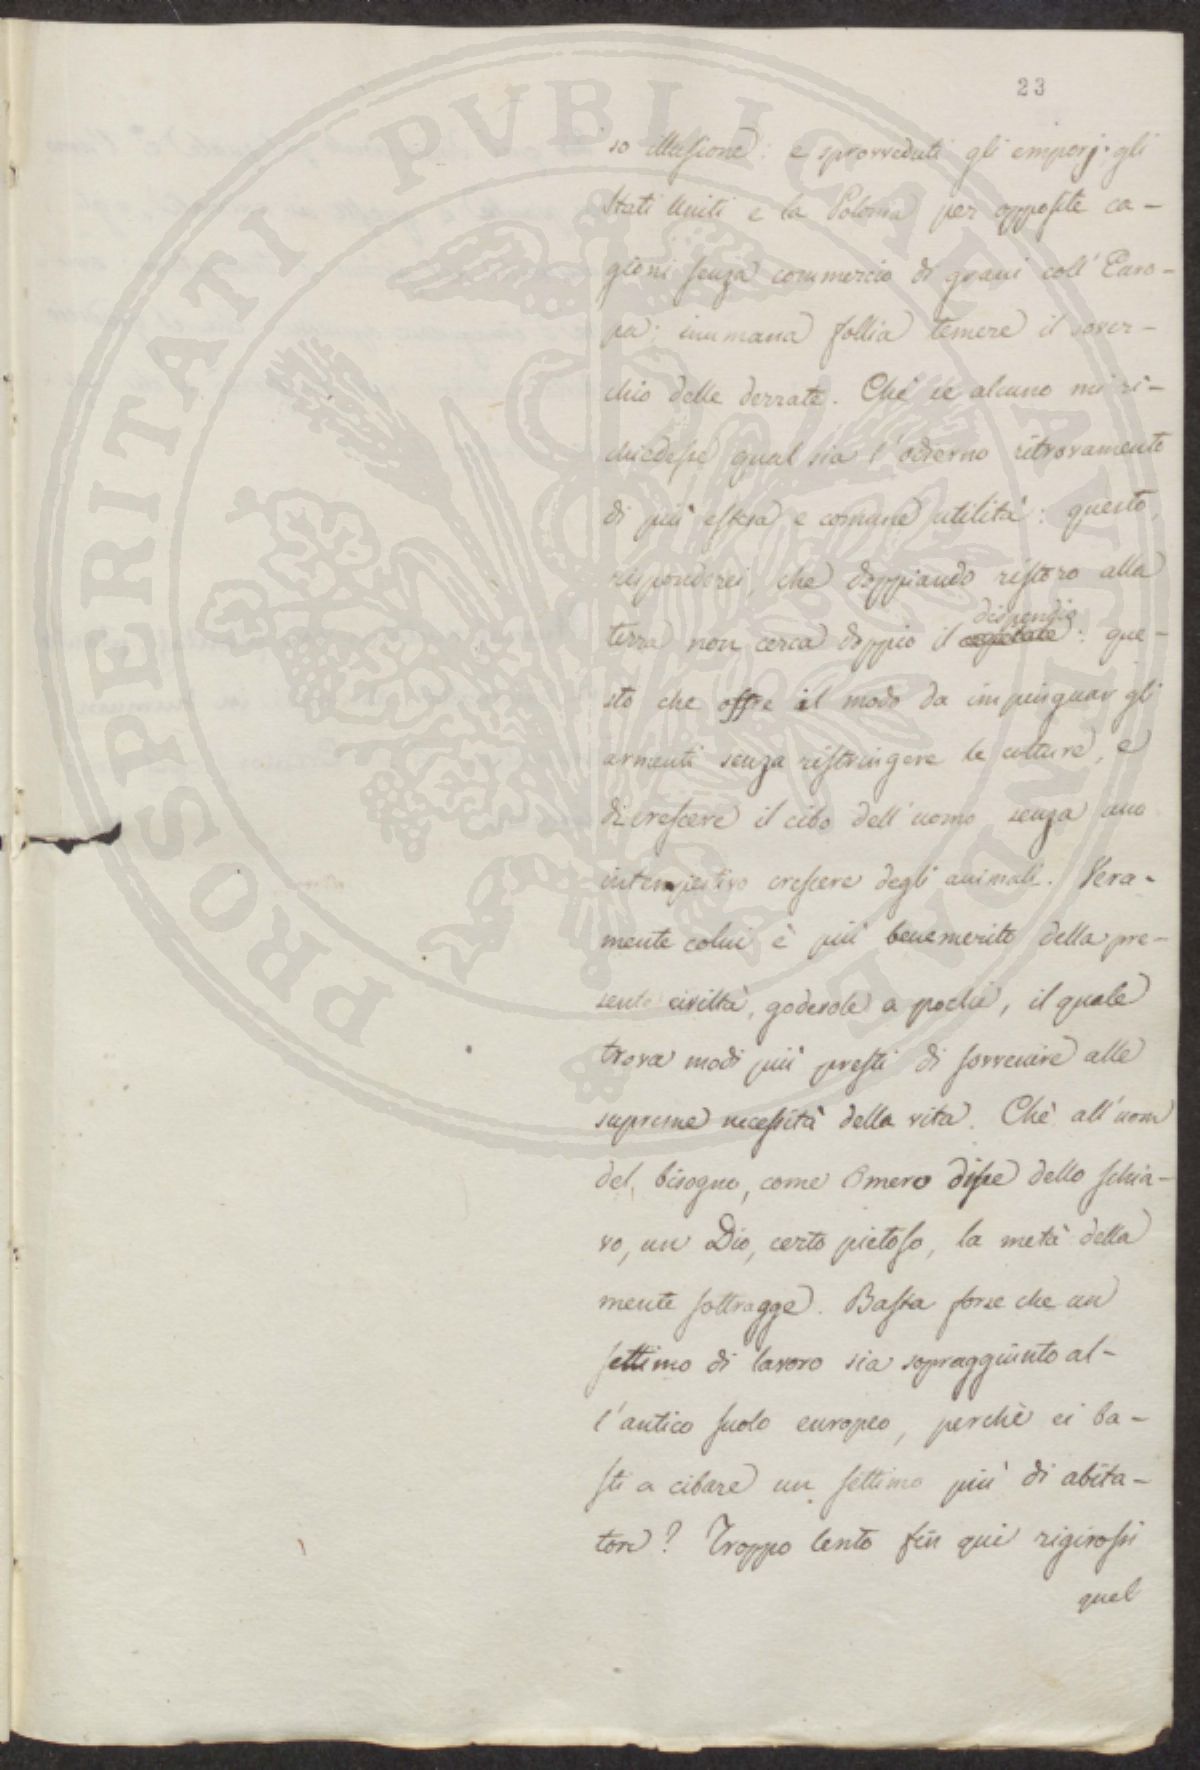 23
so illusione: e sprovveduti gli emporj: gli
Stati Uniti e la Polonia per opposite ca-
gioni senza commercio di grani coll'Euro-
pa: inumana follia temere il sover-
chio delle derrate. Chè se alcuno mi ri-
chiedesse qual sia l'odierno ritrovamento
di più estesa e comune utilità: questo,
risponderei, che doppiando ristoro alla
dispendio
terra non cerca doppio il: que-
sto che offre il modo da impinguar gli
armenti senza ristringere le culture, e
di crescere il cibo dell'uomo senza uno
intempestivo crescere degli animali. Vera-
mente colui è più benemerito della pre-
sente civiltà, godevole a pochi, il quale
trova modi più presti di sovvenire alle
supreme necessità della vita. Chè all'uom
del bisogno, come Omero disse dello schia-
vo, un Dio, certo pietoso, la metà della
mente sottragge. Basta forse che un
settimo di lavoro sia sopraggiunto al-
l'antico suolo europeo, perchè ei ba-
sti a cibare un settimo più di abita-
tori? Troppo lento fin qui rigirossi
quel
PROSPERITATI PVBLICAE AVGENDAE